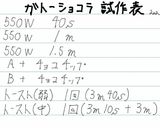 ガトーショコラ 試作表
550W 40s
550W 1m
550W 1.5m
A + チョコチップ
B + チョコチップ
トースト(弱) 1回(3m40s)
トースト(中) 1回(3m10s+3m)